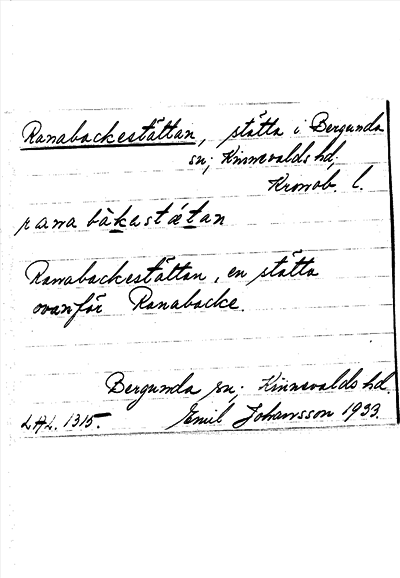 Ranabackestättan, stätta i Bergunda
sn; Kinnevalds hd,
Kronob. l.
rana bàkastǽtan
Ranabackestättan, en stätta
ovanför Ranabacke.
Bergunda sn; Kinnevalds hd.
L.A.L. 1315. Emil Johansson 1933.